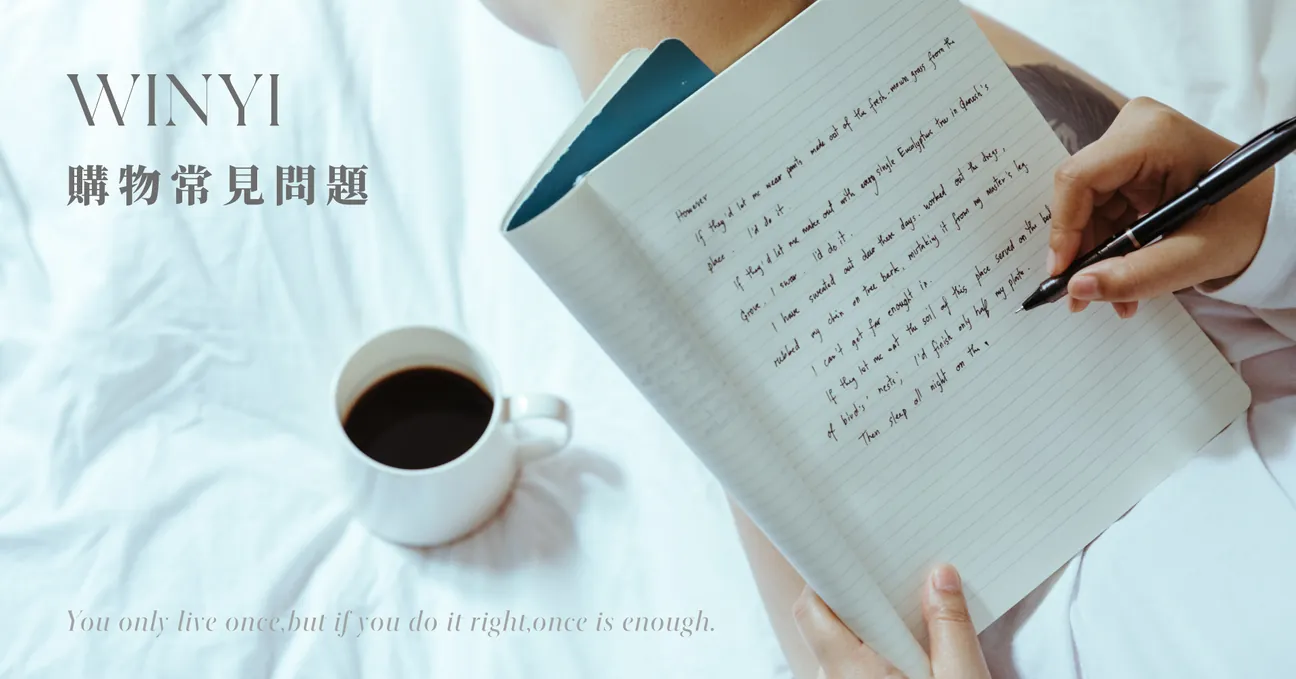 WINYI
購物常見問題
However
If they'd let me wear pants made out of the fresh-mown grass from the
place. I'd do it.
If they'd let me make out with every single Eucalyptus tree in Ganesh's
Grove, I swear. I'd do it.
I have sweated out dear these days. worked out the dregs,
rubbed my chin on tree bark, mistaking it from my master's leg
I can't get far enought in.
If they let me eat the soil of this place served on the bed
of bird's' nests; I'd finish only half my plate.
Then sleep all night on the
You only live once,but if you do it right,once is enough.